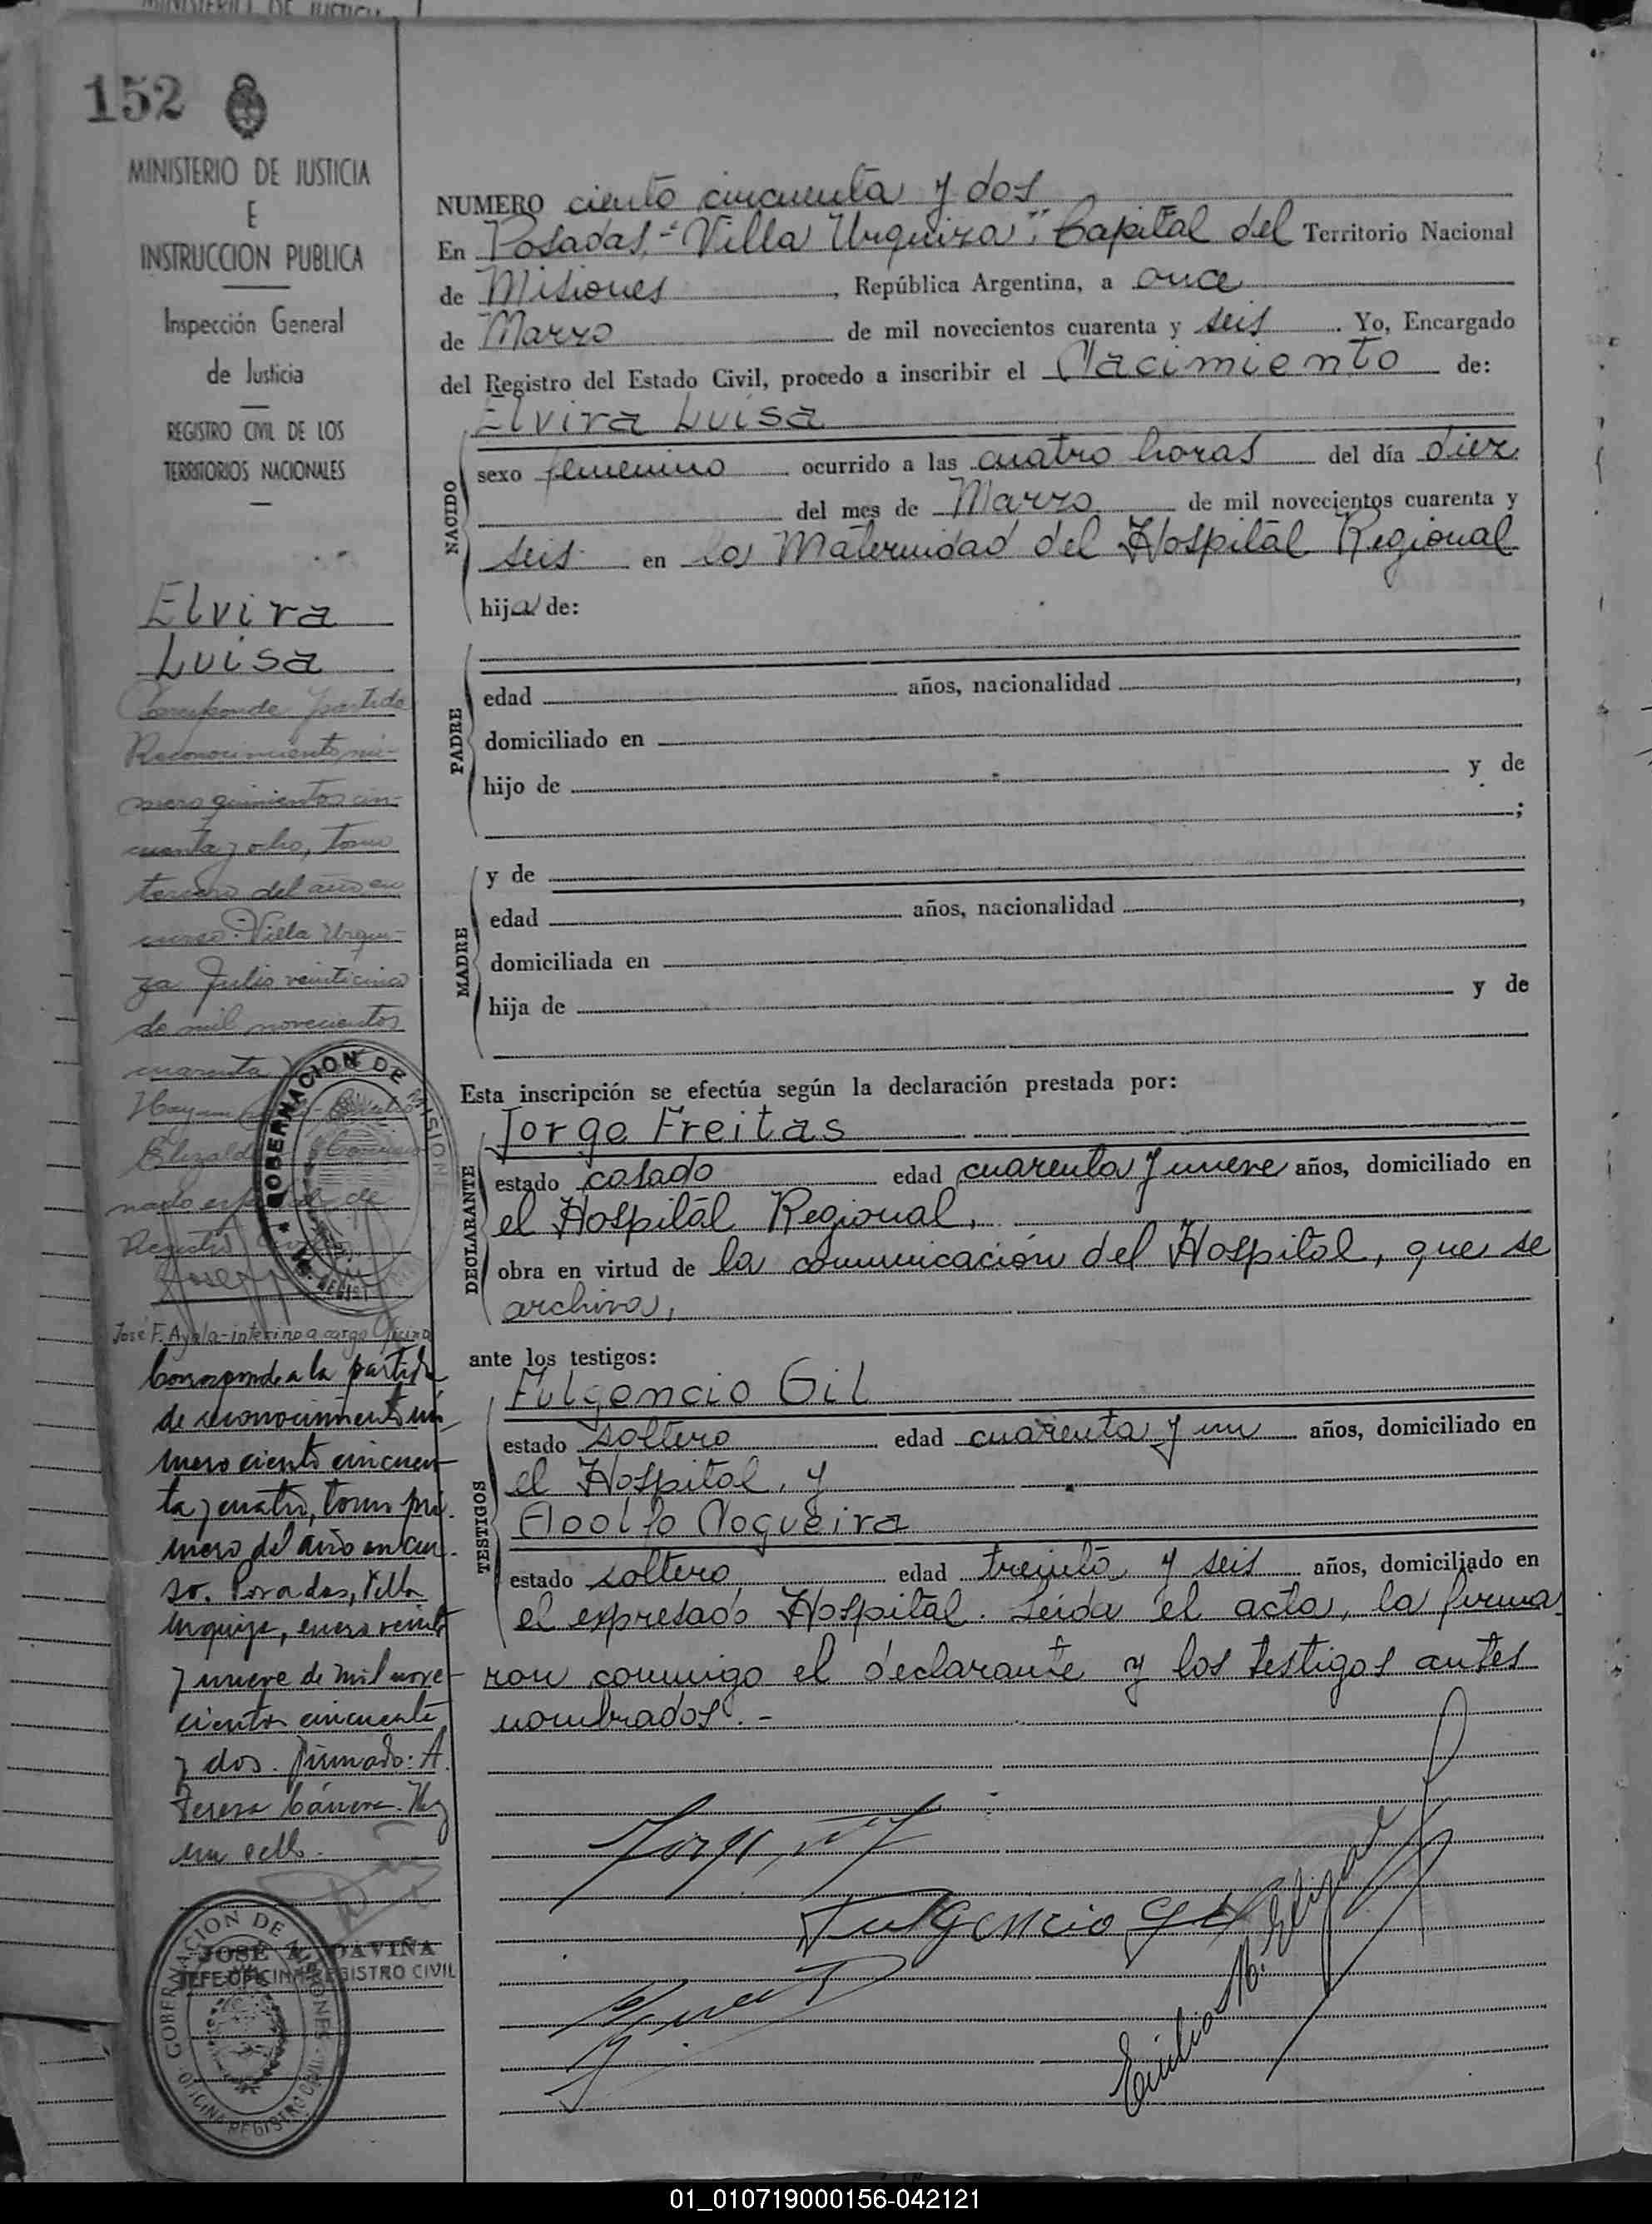 152
MINISTERIO DE JUSTICIA
E
INSTRUCCION PUBLICA
Inspección General
de Justicia
REGISTRO CIVIL DE LOS
TERRITORIOS NACIONALES
Elvira
Luisa
Corresponde partida
Reconocimiento nú-
mero quinientos cin-
cuenta y ocho, tomo
tercero del año en
curso. Villa Urqui-
za Julio veinticinco
de mil novecientos
cuarenta y
Hay un
Elizalde
nado
Registro Civil
José F. Ayala-interino a cargo Oficina
Corresponde a la partida
de reconocimiento nú-
mero ciento cincuen-
ta y cuatro, tomo pri-
mero del año en cur-
so. Posadas, Villa
Urquiza, enero veinti
y nueve de mil nove-
cientos cincuenta
y dos. Firmado: A.
Teresa Cánova. Hay
un sello.
JOSÉ A. GAVIÑA
JEFE OFICINA REGISTRO CIVIL
GOBERNACION DE MISIONES
OFICINA REGISTRO CIVIL
NUMERO ciento cincuenta y dos
En Posadas, "Villa Urquiza", Capital del Territorio Nacional
de Misiones, República Argentina, a once
de Marzo de mil novecientos cuarenta y seis. Yo, Encargado
del Registro del Estado Civil, procedo a inscribir el Nacimiento de:
Elvira Luisa
NACIDO
sexo femenino ocurrido a las cuatro horas del día diez
del mes de Marzo de mil novecientos cuarenta y
seis en la Maternidad del Hospital Regional
hija de:
PADRE
edad años, nacionalidad,
domiciliado en
hijo de y de
;
MADRE
y de
edad años, nacionalidad,
domiciliada en
hija de y de
Esta inscripción se efectúa según la declaración prestada por:
DECLARANTE
Jorge Freitas
estado casado edad cuarenta y nueve años, domiciliado en
el Hospital Regional,
obra en virtud de la comunicación del Hospital, que se
archiva,
ante los testigos:
TESTIGOS
Fulgencio Gil
estado soltero edad cuarenta y un años, domiciliado en
el Hospital, y
Adolfo Nogueira
estado soltero edad treinta y seis años, domiciliado en
el expresado Hospital. Leída el acta, la firma
ron conmigo el declarante y los testigos antes
nombrados.-
Fulgencio Gil
Emilio M. Elizalde
01_010719000156-042121